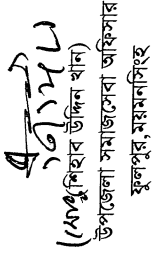 (মোঃ শিহাব উদ্দিন খান)
উপজেলা সমাজসেবা অফিসার
ফুলপুর, ময়মনসিংহ